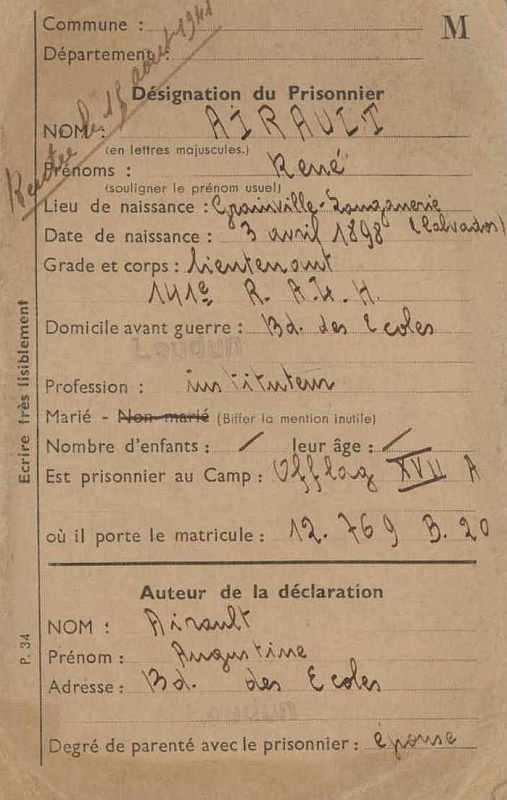 Commune :
M
Département :
Rentré le 15 août 1941
Désignation du Prisonnier
NOM : AIRAULT
(en lettres majuscules.)
Prénoms : René
(souligner le prénom usuel)
Lieu de naissance : Grainville-Langannerie
Date de naissance : 3 avril 1898 (Calvados)
Grade et corps : lieutenant
141e R. A. L. H.
Domicile avant guerre : Bd. des Ecoles
Loudun
Profession : instituteur
Marié - Non marié (Biffer la mention inutile)
Nombre d'enfants : / leur âge : /
Est prisonnier au Camp : Offlag XVII A
où il porte le matricule : 12.769 B.20
Auteur de la déclaration
NOM : Airault
Prénom : Augustine
Adresse : Bd. des Ecoles
Degré de parenté avec le prisonnier : épouse
Ecrire très lisiblement
P. 34